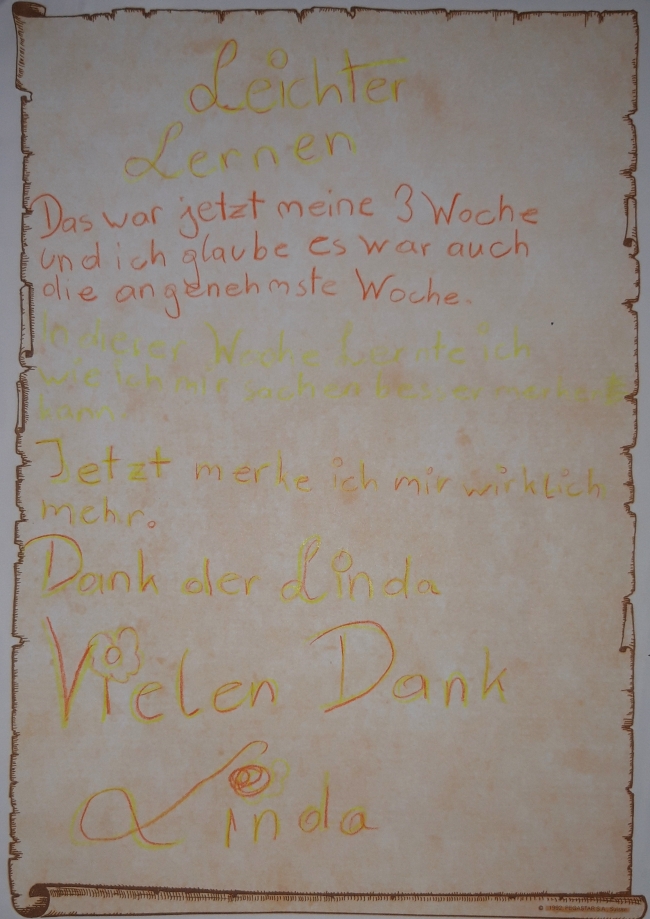 Leichter
Lernen
Das war jetzt meine 3 Woche
und ich glaube es war auch
die angenehmste Woche.
In dieser Woche Lernte ich
wie ich mir sachen besser merken
kann.
Jetzt merke ich mir wirklich
mehr.
Dank der Linda
Vielen Dank
Linda